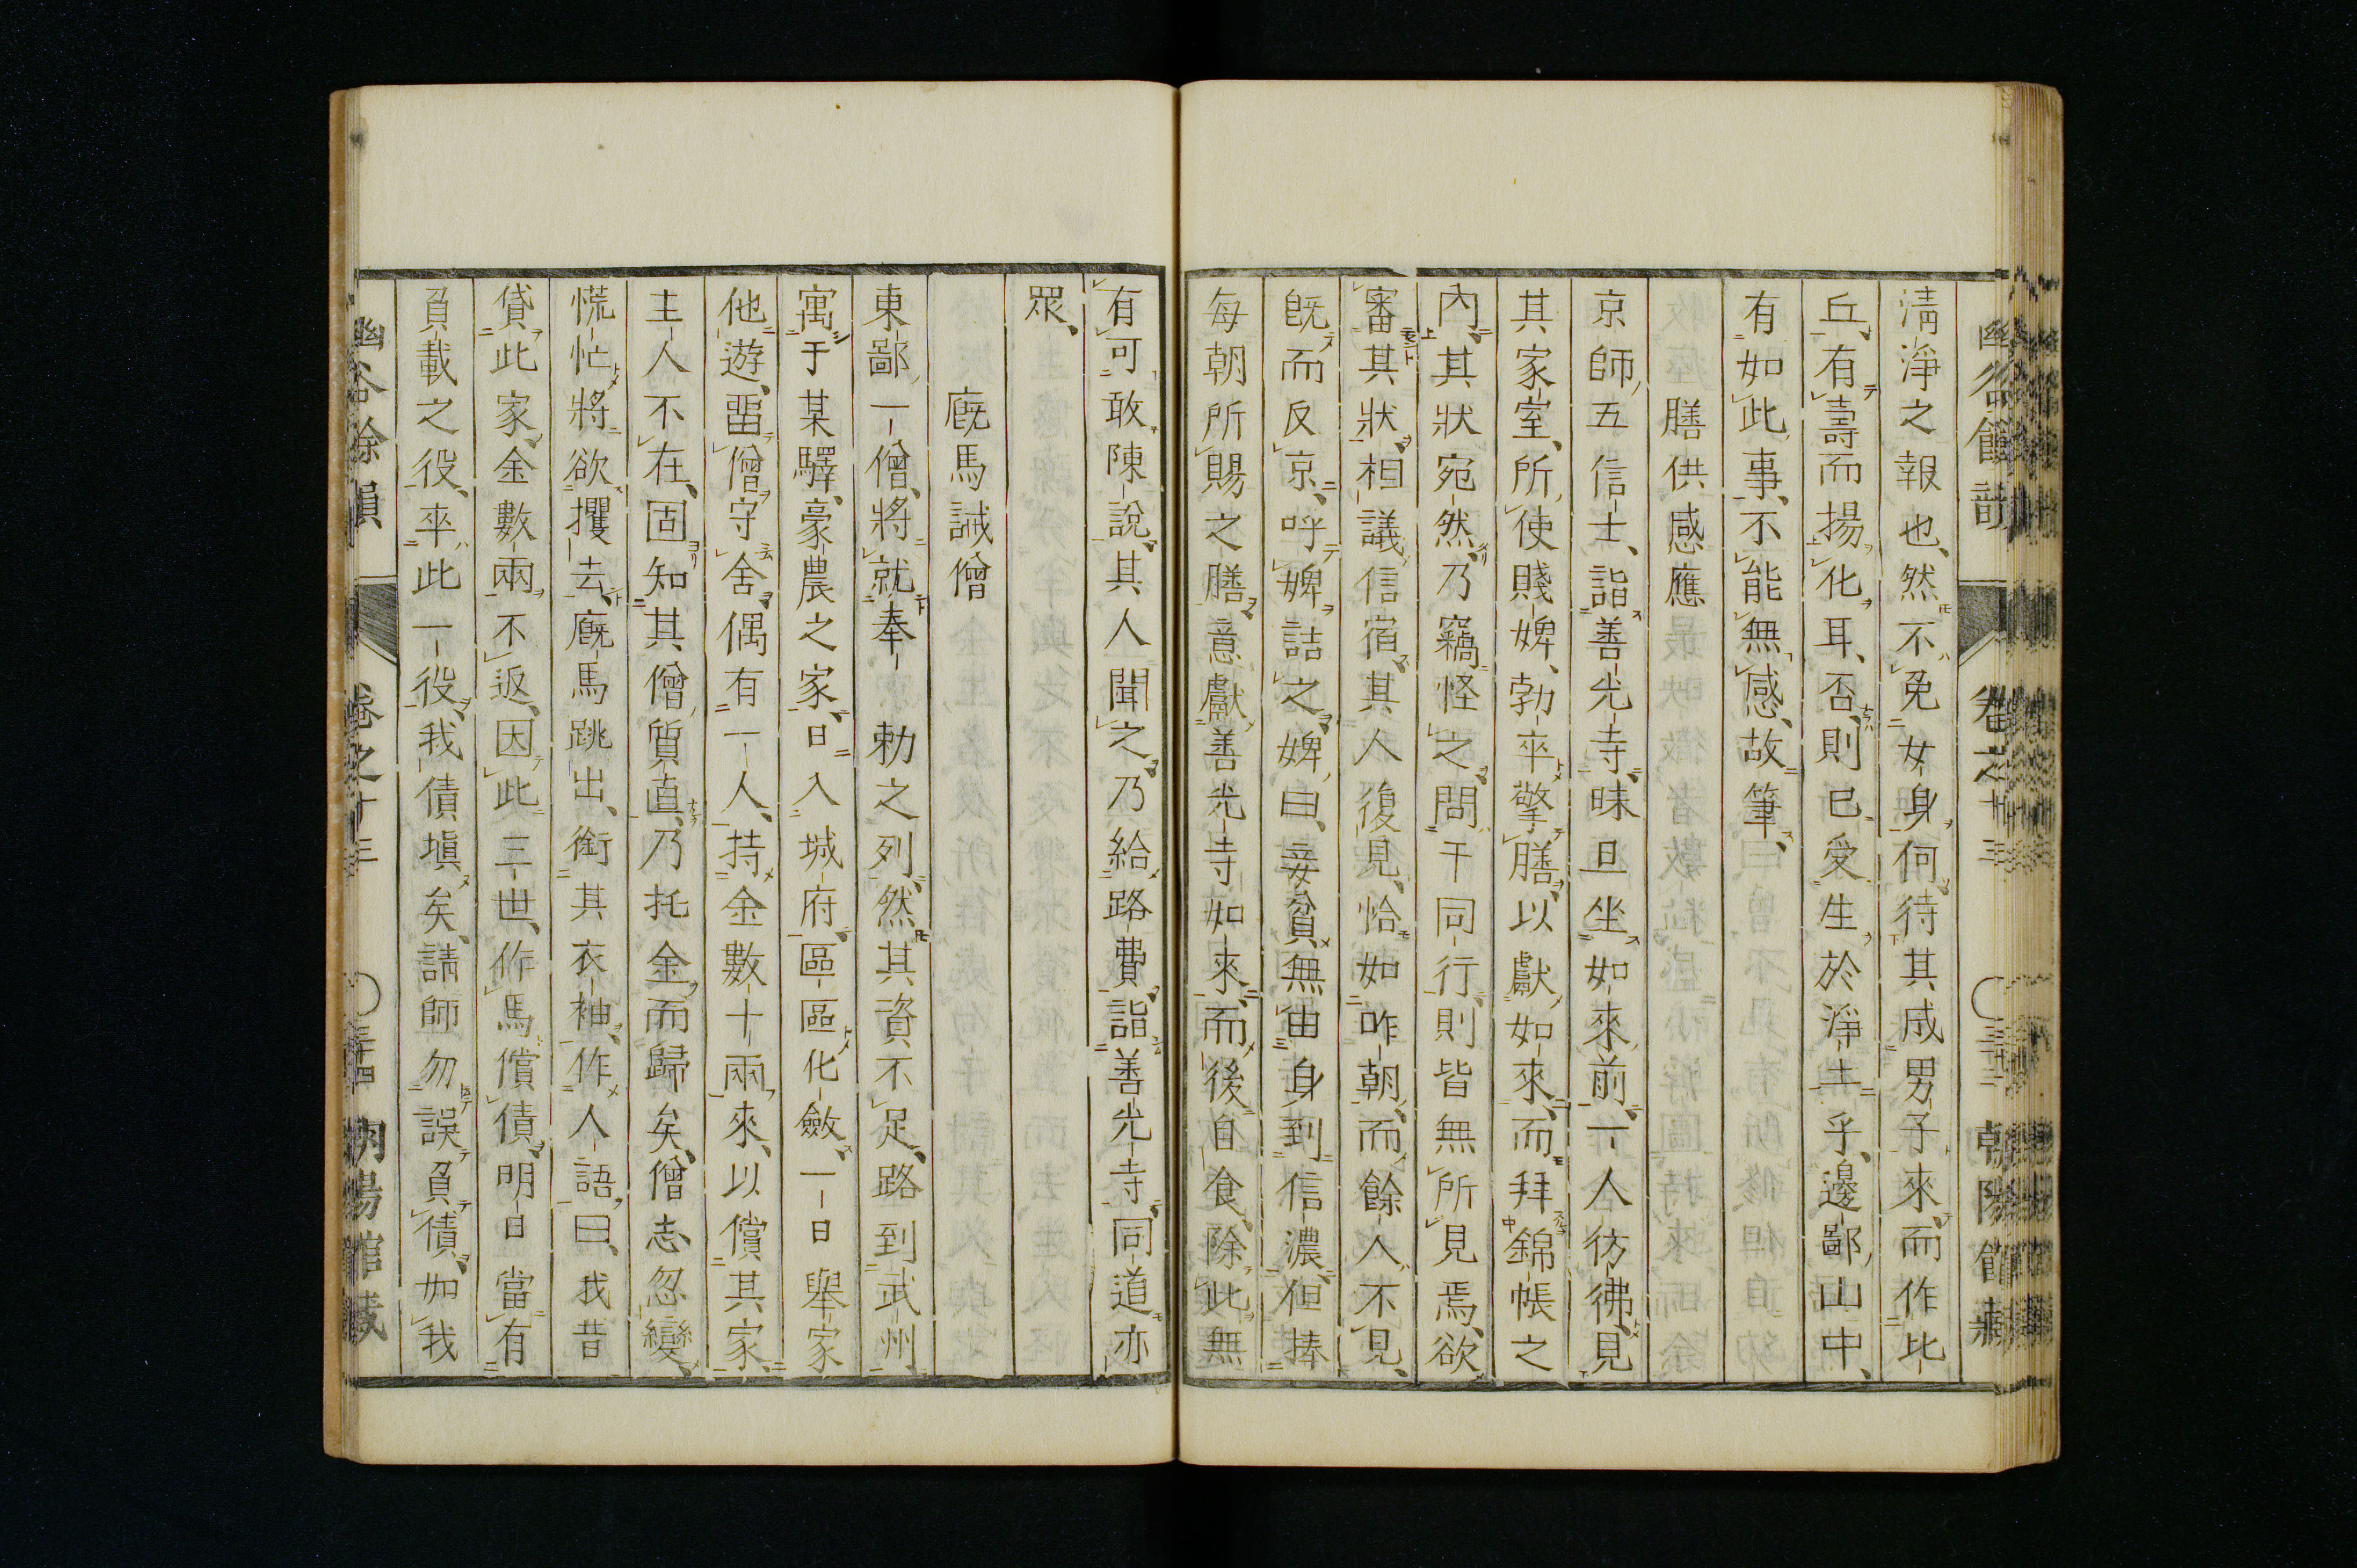 清淨之報也、然不免女身何待其成男子來、而作比
丘、有壽而揚化耳、否、則已受生於淨土乎、邊鄙山中、
有如此事、不能無感、故筆、
膳供感應
京師五信士、詣善光寺、昧旦坐如來前、一人彷彿見
其家室、所使賤婢、勃卒擎膳、以獻如來、而拜錦帳之
內、其狀宛然、乃竊怪之、問于同行則皆無所見焉、欲
審其狀、相議信宿、其人復見、恰如昨朝、而餘人不見、
旣而反京、呼婢詰之、婢曰、妾貧無由身到信濃、但捧
每朝所賜之膳、意獻善光寺如來、而後自食、除此無
有可敢陳說、其人聞之、乃給路費、詣善光寺、同道亦
眾、
廐馬誡僧
東鄙一僧、將就奉 勅之列、然其資不足、路到武州
寓于某驛、豪農之家、日入城府、區區化斂、一日舉家
他遊、畱僧守舍、偶有一人、持金數十兩來、以償其家、
主人不在、固知其僧質直、乃托金而歸矣、僧志忽變、
慌忙將欲攫去、廐馬跳出、銜其衣袖、作人語曰、我昔
貸此家、金數兩不返、因此三世、作馬償債、明日當有
負載之役、卒此一役、我債塡矣、請師勿誤負債、如我
幽谷餘韻 卷之十三 〇三十四 朝陽館藏